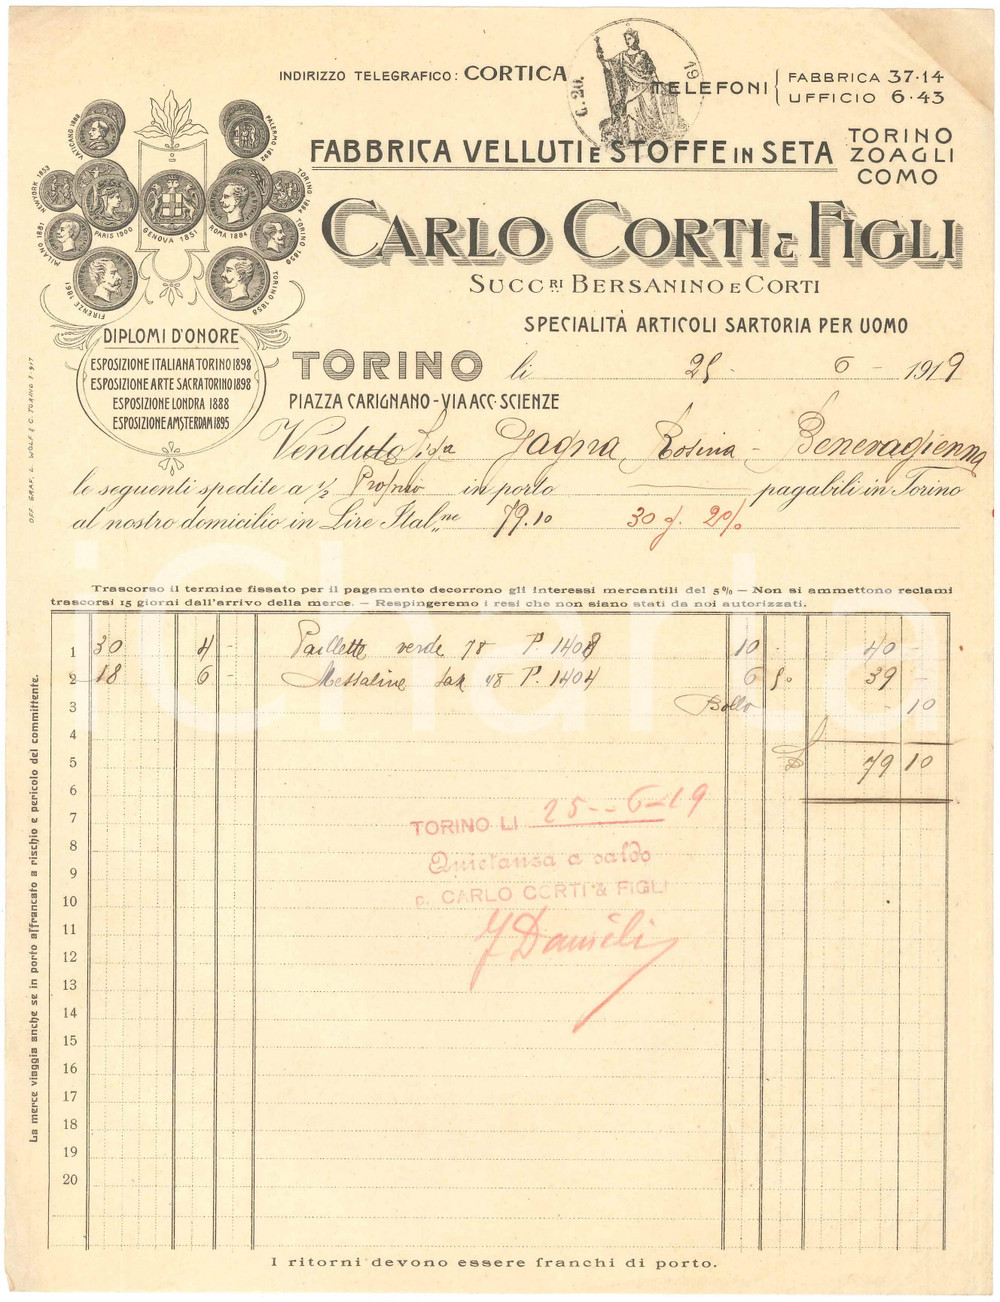 INDIRIZZO TELEGRAFICO: CORTICA
C. 20.
19
TELEFONI { FABBRICA 37·14
UFFICIO 6·43
FABBRICA VELLUTI E STOFFE IN SETA
TORINO
ZOAGLI
COMO
CARLO CORTI & FIGLI
SUCC.RI BERSANINO E CORTI
SPECIALITÀ ARTICOLI SARTORIA PER UOMO
VATICANO 1888
PALERMO 1892
NEW-YORK 1853
TORINO 1884
MILANO 1881
PARIS 1900
GENOVA 1851
ROMA 1884
FIRENZE 1861
TORINO 1858
DIPLOMI D'ONORE
ESPOSIZIONE ITALIANA TORINO 1898
ESPOSIZIONE ARTE SACRA TORINO 1898
ESPOSIZIONE LONDRA 1888
ESPOSIZIONE AMSTERDAM 1895
OFF. GRAF. L. WOLF & C. TORINO
TORINO li 25 - 6 - 1919
PIAZZA CARIGNANO - VIA ACC. SCIENZE
Venduto Sig.a Gagna Rosina - Benevagienna
le seguenti spedite a ½ Proprio in porto pagabili in Torino
al nostro domicilio in Lire Ital.ne 79.10 30 g. 2%
Trascorso il termine fissato per il pagamento decorrono gli interessi mercantili del 5% — Non si ammettono reclami
trascorsi 15 giorni dall'arrivo della merce. — Respingeremo i resi che non siano stati da noi autorizzati.
1 30 4 - Paillette verde 78 P. 1408 10 - 40 -
2 18 6 - Messaline 48 P. 1404 6 50 39 -
3 Bollo - 10
4
5 £ 79 10
6
7
8
9
10
11
12
13
14
15
16
17
18
19
20
TORINO LI 25 - 6 - 19
Quietanza a saldo
p. CARLO CORTI & FIGLI
La merce viaggia anche se in porto affrancato a rischio e pericolo del committente.
I ritorni devono essere franchi di porto.
iCharta